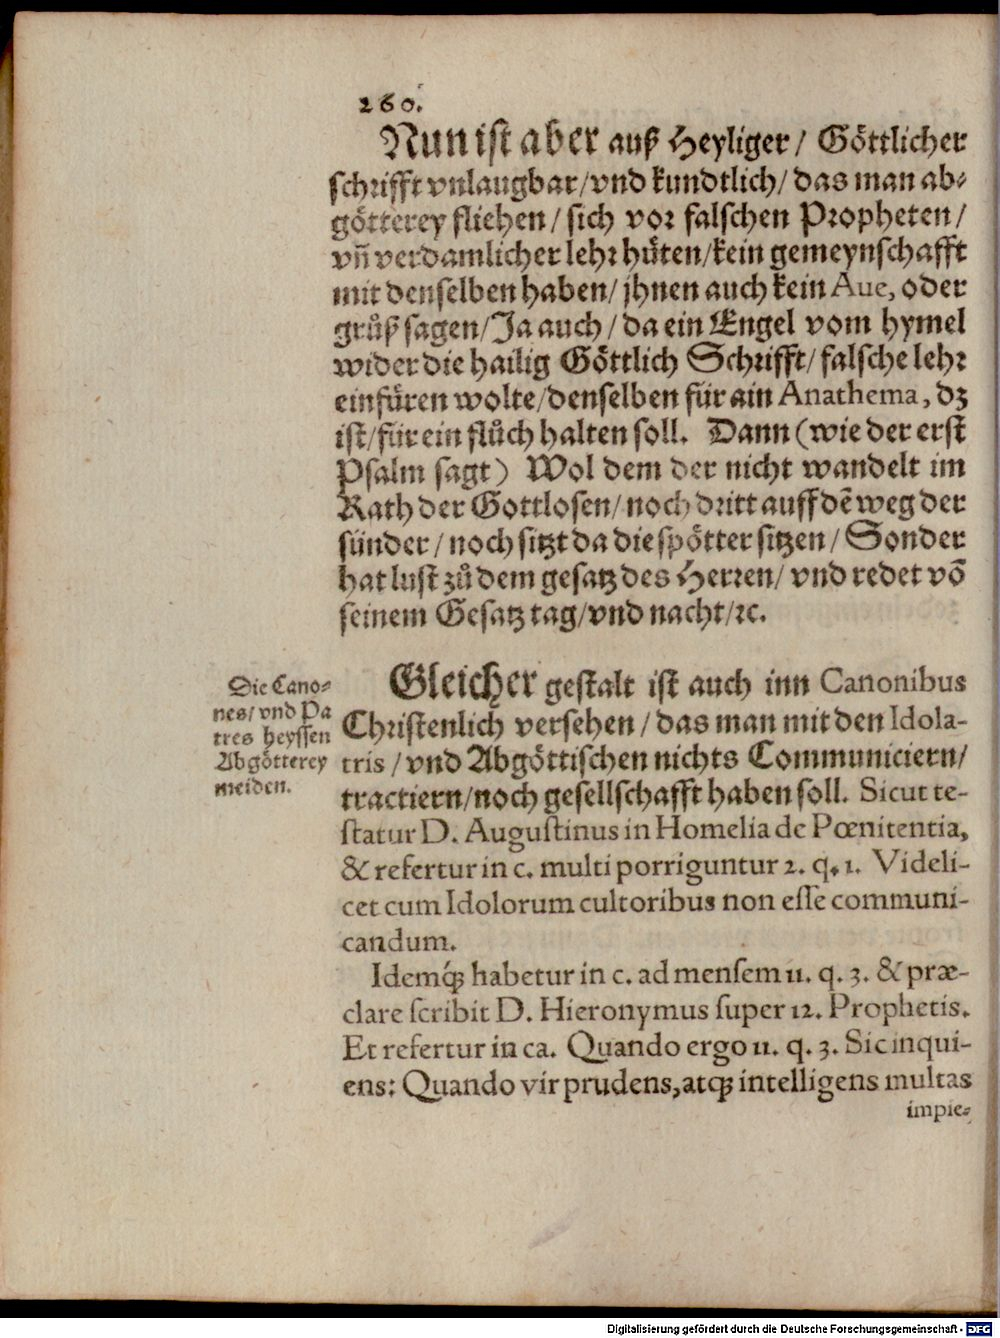 260.
Nun ist aber auß Heyliger / Göttlicher
schrifft vnlaugbar/vnd kundtlich/ das man ab⸗
götterey fliehen / sich vor falschen Propheten /
vn̄ verdamlicher lehr hüten/kein gemeynschafft
mit denselben haben/ jhnen auch kein Aue, oder
grůß sagen/Ja auch / da ein Engel vom hymel
wider die hailig Göttlich Schrifft/ falsche lehr
einfüren wolte/denselben für ain Anathema, dz
ist/für ein flůch halten soll. Dann (wie der erst
Psalm sagt) Wol dem der nicht wandelt im
Rath der Gottlosen/ noch dritt auff dẽ weg der
sünder / noch sitzt da die spötter sitzen / Sonder
hat lust zů dem gesatz des Herren/ vnd redet võ
seinem Gesatz tag/vnd nacht/ꝛc.
Die Cano⸗
nes/ vnd Pa
tres heyssen
Abgötterey
meiden.
Gleicher gestalt ist auch inn Canonibus
Christenlich versehen / das man mit den Idola-
tris / vnd Abgöttischen nichts Communiciern/
tractiern/noch gesellschafft haben soll. Sicut te-
statur D. Augustinus in Homelia de Pœnitentia,
& refertur in c. multi porriguntur 2. q. 1. Videli-
cet cum Idolorum cultoribus non esse communi-
candum.
Idemq́; habetur in c. ad mensem 11. q. 3. & præ-
clare scribit D. Hieronymus super 12. Prophetis.
Et refertur in ca. Quando ergo 11. q. 3. Sic inqui-
ens: Quando vir prudens, atq; intelligens multas
impie-
Digitalisierung gefördert durch die Deutsche Forschungsgemeinschaft - DFG